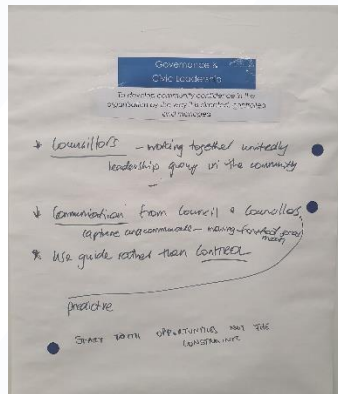 Governance &
Civic Leadership
To develop community confidence in the
organisation by the way it is directed, controlled
and managed
* Councillors - working together unitedly
leadership group in the community
* Communication from Council & Councillors
capture and communicate - moving forward from
* Use guide rather than CONTROL
predictive
START WITH OPPORTUNITIES NOT THE
CONSTRAINTS